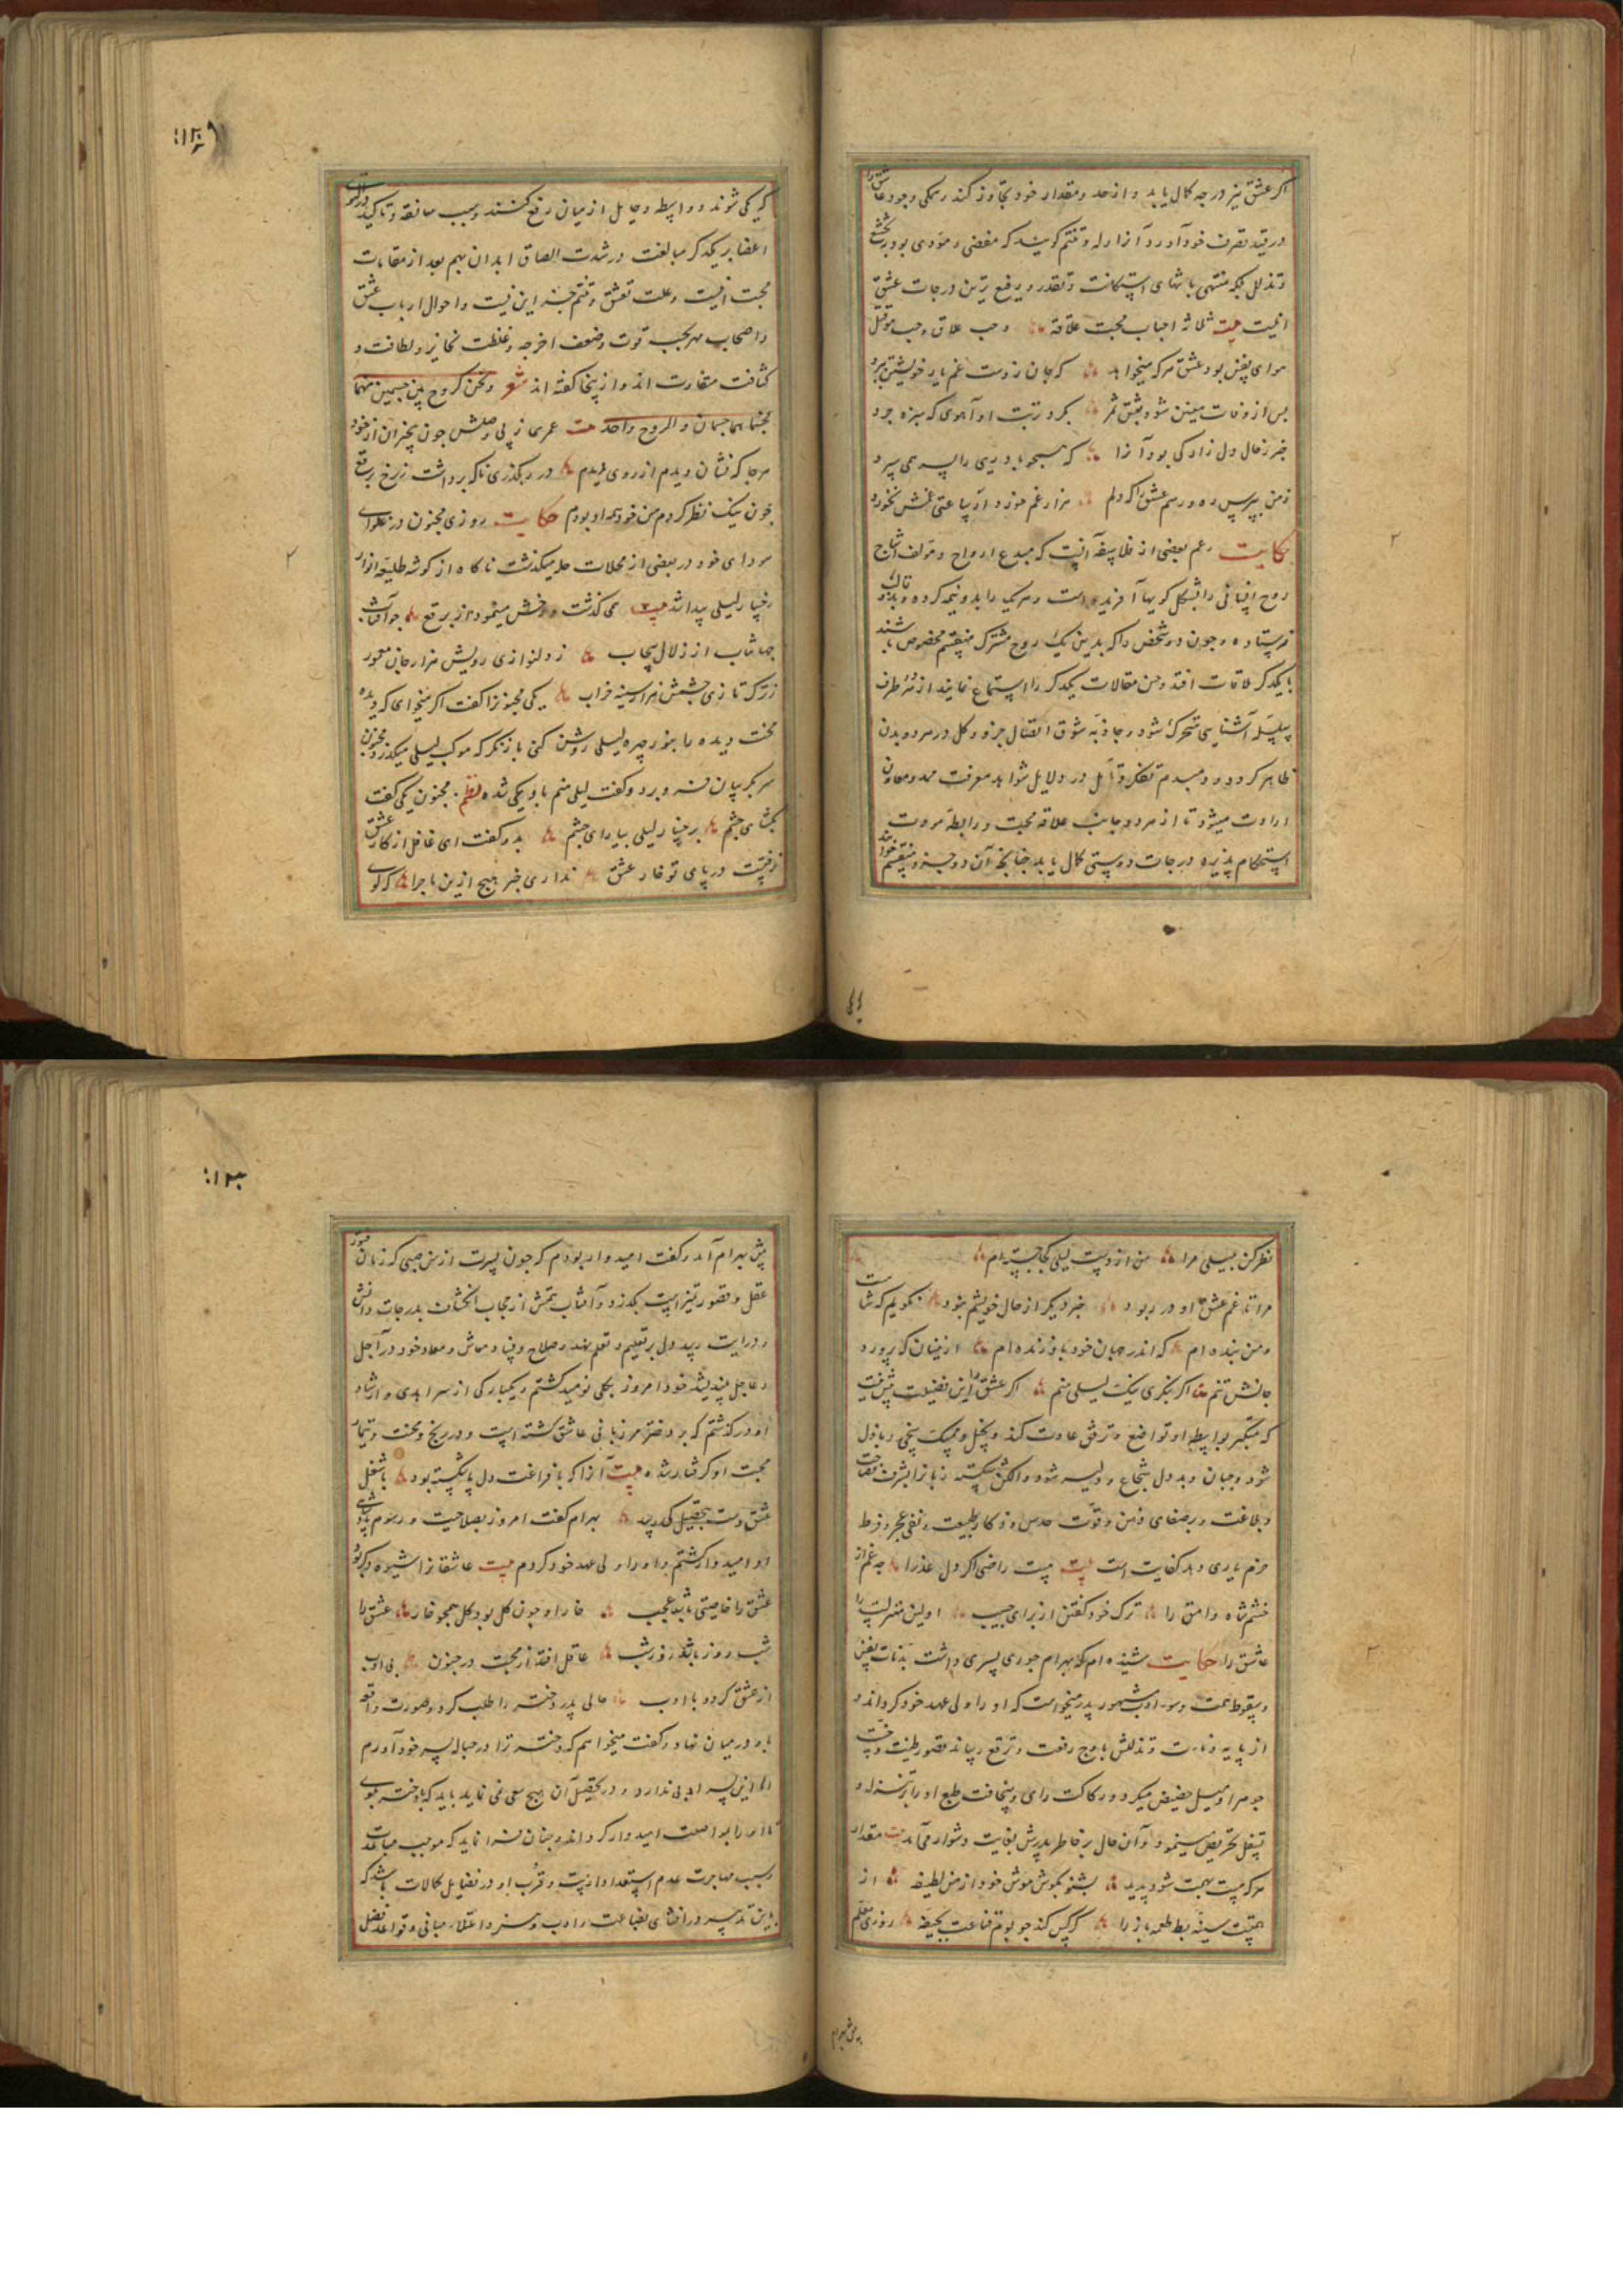 اکر عشق نیز درجه کمال یابد و از حد و مقدار خود تجاوز کند و همکی وجود عاشق را
در قید تصرف خود آورد آنرا وله و تتیم کویند که مفضی و مؤدی بود
و تذلل بلکه منتهی بانتهای استکانت و تقدر و رفیع ترین درجات عشق
اینست بیت ثلاثة احباب محبت علاقه وحب علاق وحب هو القتل
هوای نفس بود عشق هرکه میخواهد که جان ز دست غم یار خویشتن ببرد
پس از وفات مبین شود بعشق ثمر بکرد تربت او آهوی که سبزه چرد
خبر ز حال دل زار کی بود آنرا که همچو باد
ز من بپرس ره و رسم عشق را که دلم هزار غم خورد و از ساعتی غمش نخورد
حکایت زعم بعضی از فلاسفه آنست که مبدع ارواح و مؤلف اشباح
روح انسانی را بشکل کویها آفریده است و هر یک را بدو نیمه کرده و بدو قالب
فرستاده و چون دو شخص را که بدین یک روح مشترک منقسم مخصوص باشند
با یکدکر ملاقات افتد و حسن مقالات یکدکر را استماع نمایند از هر دو طرف
سلسله آشنایی متحرک شود و جاذبه شوق اتصال جزو و کل در هر دو بدن
ظاهر کردد و دمبدم تفکر و تأمل در دلایل شواهد معرفت ممد و معاون
ارادت میشود تا از هر دو جانب علاقه محبت و رابطه مودت
استحکام پذیرد و درجات دوستی کمال یابد چنانچه آن دو جزو منقسم خواهند
که یکی شوند و واسطه و حایل از میان رفع کنند و سبب معانقه و تاکید
اعضا بر یکدکر مبالغت در شدت الصاق ابدان بهم بعد از مقامات
محبت اینست و علت تعشق و تتیم جز این نیست و احوال ارباب عشق
و اصحاب مهر بحسب قوت و ضعف امزجه و غلظت نحایز و لطافت و
کثافت متفاوت اند و ازینجا کفته اند شعر ونحن کروح بین جسمین
فجسماهما جسمان والروح واحد بیت عمری ز پی وصلش چون بیخبران از خود
هر جا که نشان دیدم از روی دیدم در رهکذری ناکه برداشت ز رخ برقع
چون نیک نظر کردم من خود همه او بودم حکایت روزی مجنون در غلوای
سودای خود در بعضی از محلات حله میکذشت ناکاه از کوشه طلیعه انوار
رخسار لیلی پیدا شد بیت می کذشت و رخش مینمود از برقع چو آفتاب
جهانتاب از زلال سحاب ز دلنوازی رویش هزار جان معمور
ز ترکتازی چشمش هزار سینه خراب یکی مجنونرا کفت اکر میخواهی که دیده
محنت دیده را بنور چهره لیلی روشن کنی باز نکر که موکب لیلی میکذرد مجنون
سر بکریبان فرو برد و کفت لیلی منم با وی یکی شده نظم مجنون یکی کفت
بکشای چشم برخسار لیلی بیارای چشم بدو کفت ای غافل از کار عشق
فرو رفتست در پای تو خار عشق نداری خبر هیچ ازین ماجرا که کوی
نظر کن بلیلی مرا من از دوست لیلی کجا جسته ام
مرا تا غم عشق او در ربود خبر دیکر از حال خویشم نبود نکویم که شاهست
و من بنده ام که اندر جهان خود باو زنده ام ازینسان که پرورد
جانش تنم اکر بنکری نیک لیلی منم اکر عشق را این فضیلت بیش نیست
که متکبر بواسطه او تواضع و ترفق عادت کند و بخیل و ممسک سخی و باذل
شود و جبان و بددل شجاع و دلیر شود و الکن شکسته زبان را بشرف فصاحت
و بلاغت و صفای ذهن و قوت حدس و ذکاء طبیعت و نفی عجز و فرط
حزم یاری دهد کفایت است بیت نیست راضی اکر دل عذرا چه غم از
خشم شاه وامق را ترک خود کفتن از برای حبیب اولین منزلست
عاشق را حکایت شنیده ام که بهرام جوری پسری داشت بدنائت نفس
و سقوط همت و سوء ادب مشهور پدر میخواست که او را ولی عهد خود کرداند و
از پایه دنائت و تذللش باوج رفعت و ترفع رساند قصور طینت و خست
جوهر او میل حضیض میکرد و رکاکت رای و سخافت طبع او را بر تنزل و
تسفل تحریص مینمود و آن حال بر خاطر پدرش بغایت دشوار می آمد بیت مقدار
هر کس بهمت شود پدید بشنو بکوش هوش خود از من لطیفه از
همتست سینه بط طعمه باز را کرکس کند چو بوم قناعت بجیفه روزی معلم
پیش بهرام
پیش بهرام آمد و کفت امیدوار بودم که چون پسرت از سن صبی که زمان فتور
عقل و قصور تمیز است بکذرد و آفتاب تمیزش از حجاب انخشان بدرجات دانش
و درایت رسد دل بر تعلیم و تعلم نهد و صلاح و فساد و معاش و معاد خود در آجل
و عاجل بیندیشد خود امروز بکلی نومید کشتم و یکبارکی از سر اهدی و ارشاد
او درکذشتم که بر دختر مرزبانی عاشق کشته است و در رنج و محنت و تیمار
محبت او کرفتار شده بیت آنرا که با فراغت دل پای بسته بود با شغل
عشق دست بتحصیل کی رسد بهرام کفت امروز بصلاحیت و رسوم پادشاهی
او امیدوار کشتم و او را ولی عهد خود کردم بیت عاشقانرا شیوه دیکر بود
عشق را خاصیتی باشد عجب خار او چون کل بود کل همچو خار عشق را
شب روز باشد روز شب عاقل افتد از محبت در جنون بی ادب
از عشق کردد با ادب حالی پدر دختر را طلب کرد و صورت واقعه
با او در میان نهاد و کفت میخواهم که دختر ترا در حباله پسر خود آورم
اما این پسر ادبی ندارد و در تحصیل آن هیچ سعی نمی نماید باید که با دختر بکوی
تا او را بمواصلت امیدوار کرداند و چنان فرا نماید که موجب مباعدت
و سبب مهاجرت عدم استعداد ازیست و قرب او در فضایل و کمالات باشد که
بدین تدبیر در افشای بضاعت و ادب و هنر و اعتلاء مبانی و قواعد فضل